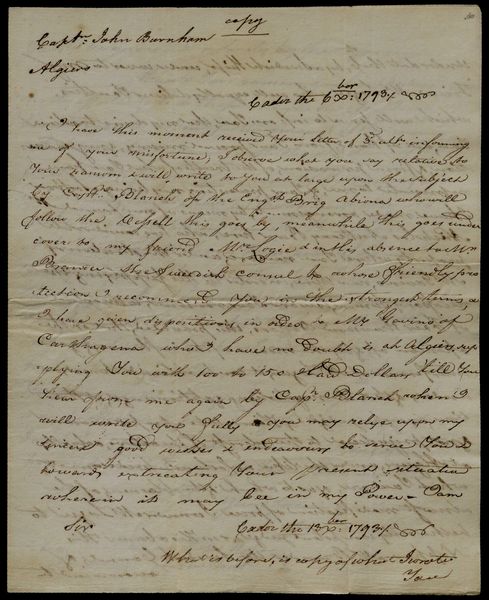 copy
Capt: John Burnham
Algiers
Cadiz the 6 Xbor: 1793
I have this moment received your letter of 5 ulto informing
me of your misfortune, I observe what you say relative to
Your ransom & will write to You at large upon the Subject
by Capt: Blanch of the Engsh Brig Abiona who will
follow the Vessell this goes by, meanwhile this goes under
cover to my friend Mr Logie & in his absence to Mr
the Swedish Consul to whose friendly pro
tection I recommend You in the strongest terms, &
I have given dispositions in order to Mr Gavino of
Carthagena who I have no doubt is at Algiers, sup
plying You with 100 to 150 Dollars, till You
hear from me again by Capt: Blanch when I
will write you fully & you may relye upon my
sincere good wishes & endeavours to serve You &
towards extricating Your present situation
wherein it may bee in my Power - I am
Sir Cadiz the 13 Xbor: 1793
What is before, is copy of what I wrote
You